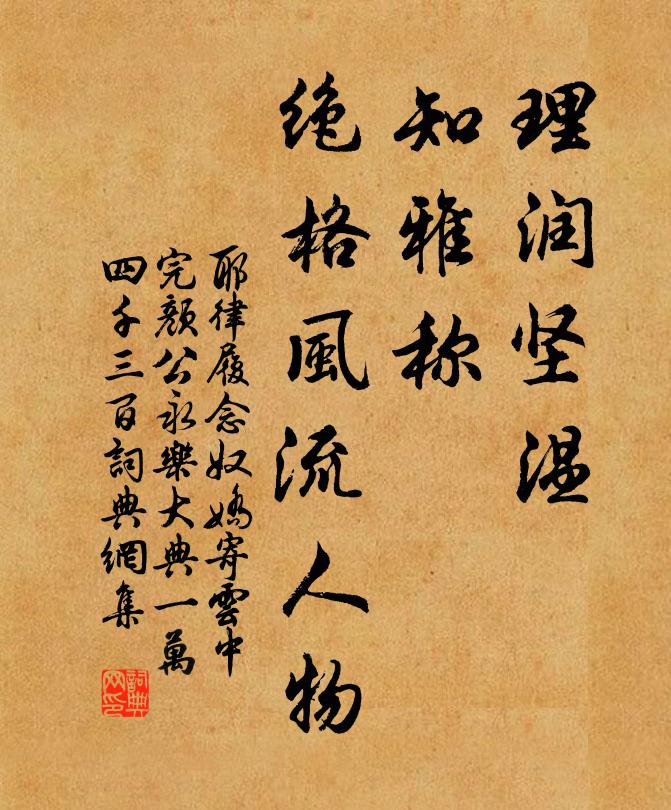 理润坚温
知雅称
绝格風流人物
耶律履念奴嬌寄雲中
完顏公永樂大典一萬
四千三百詞典網集
詞典
网印